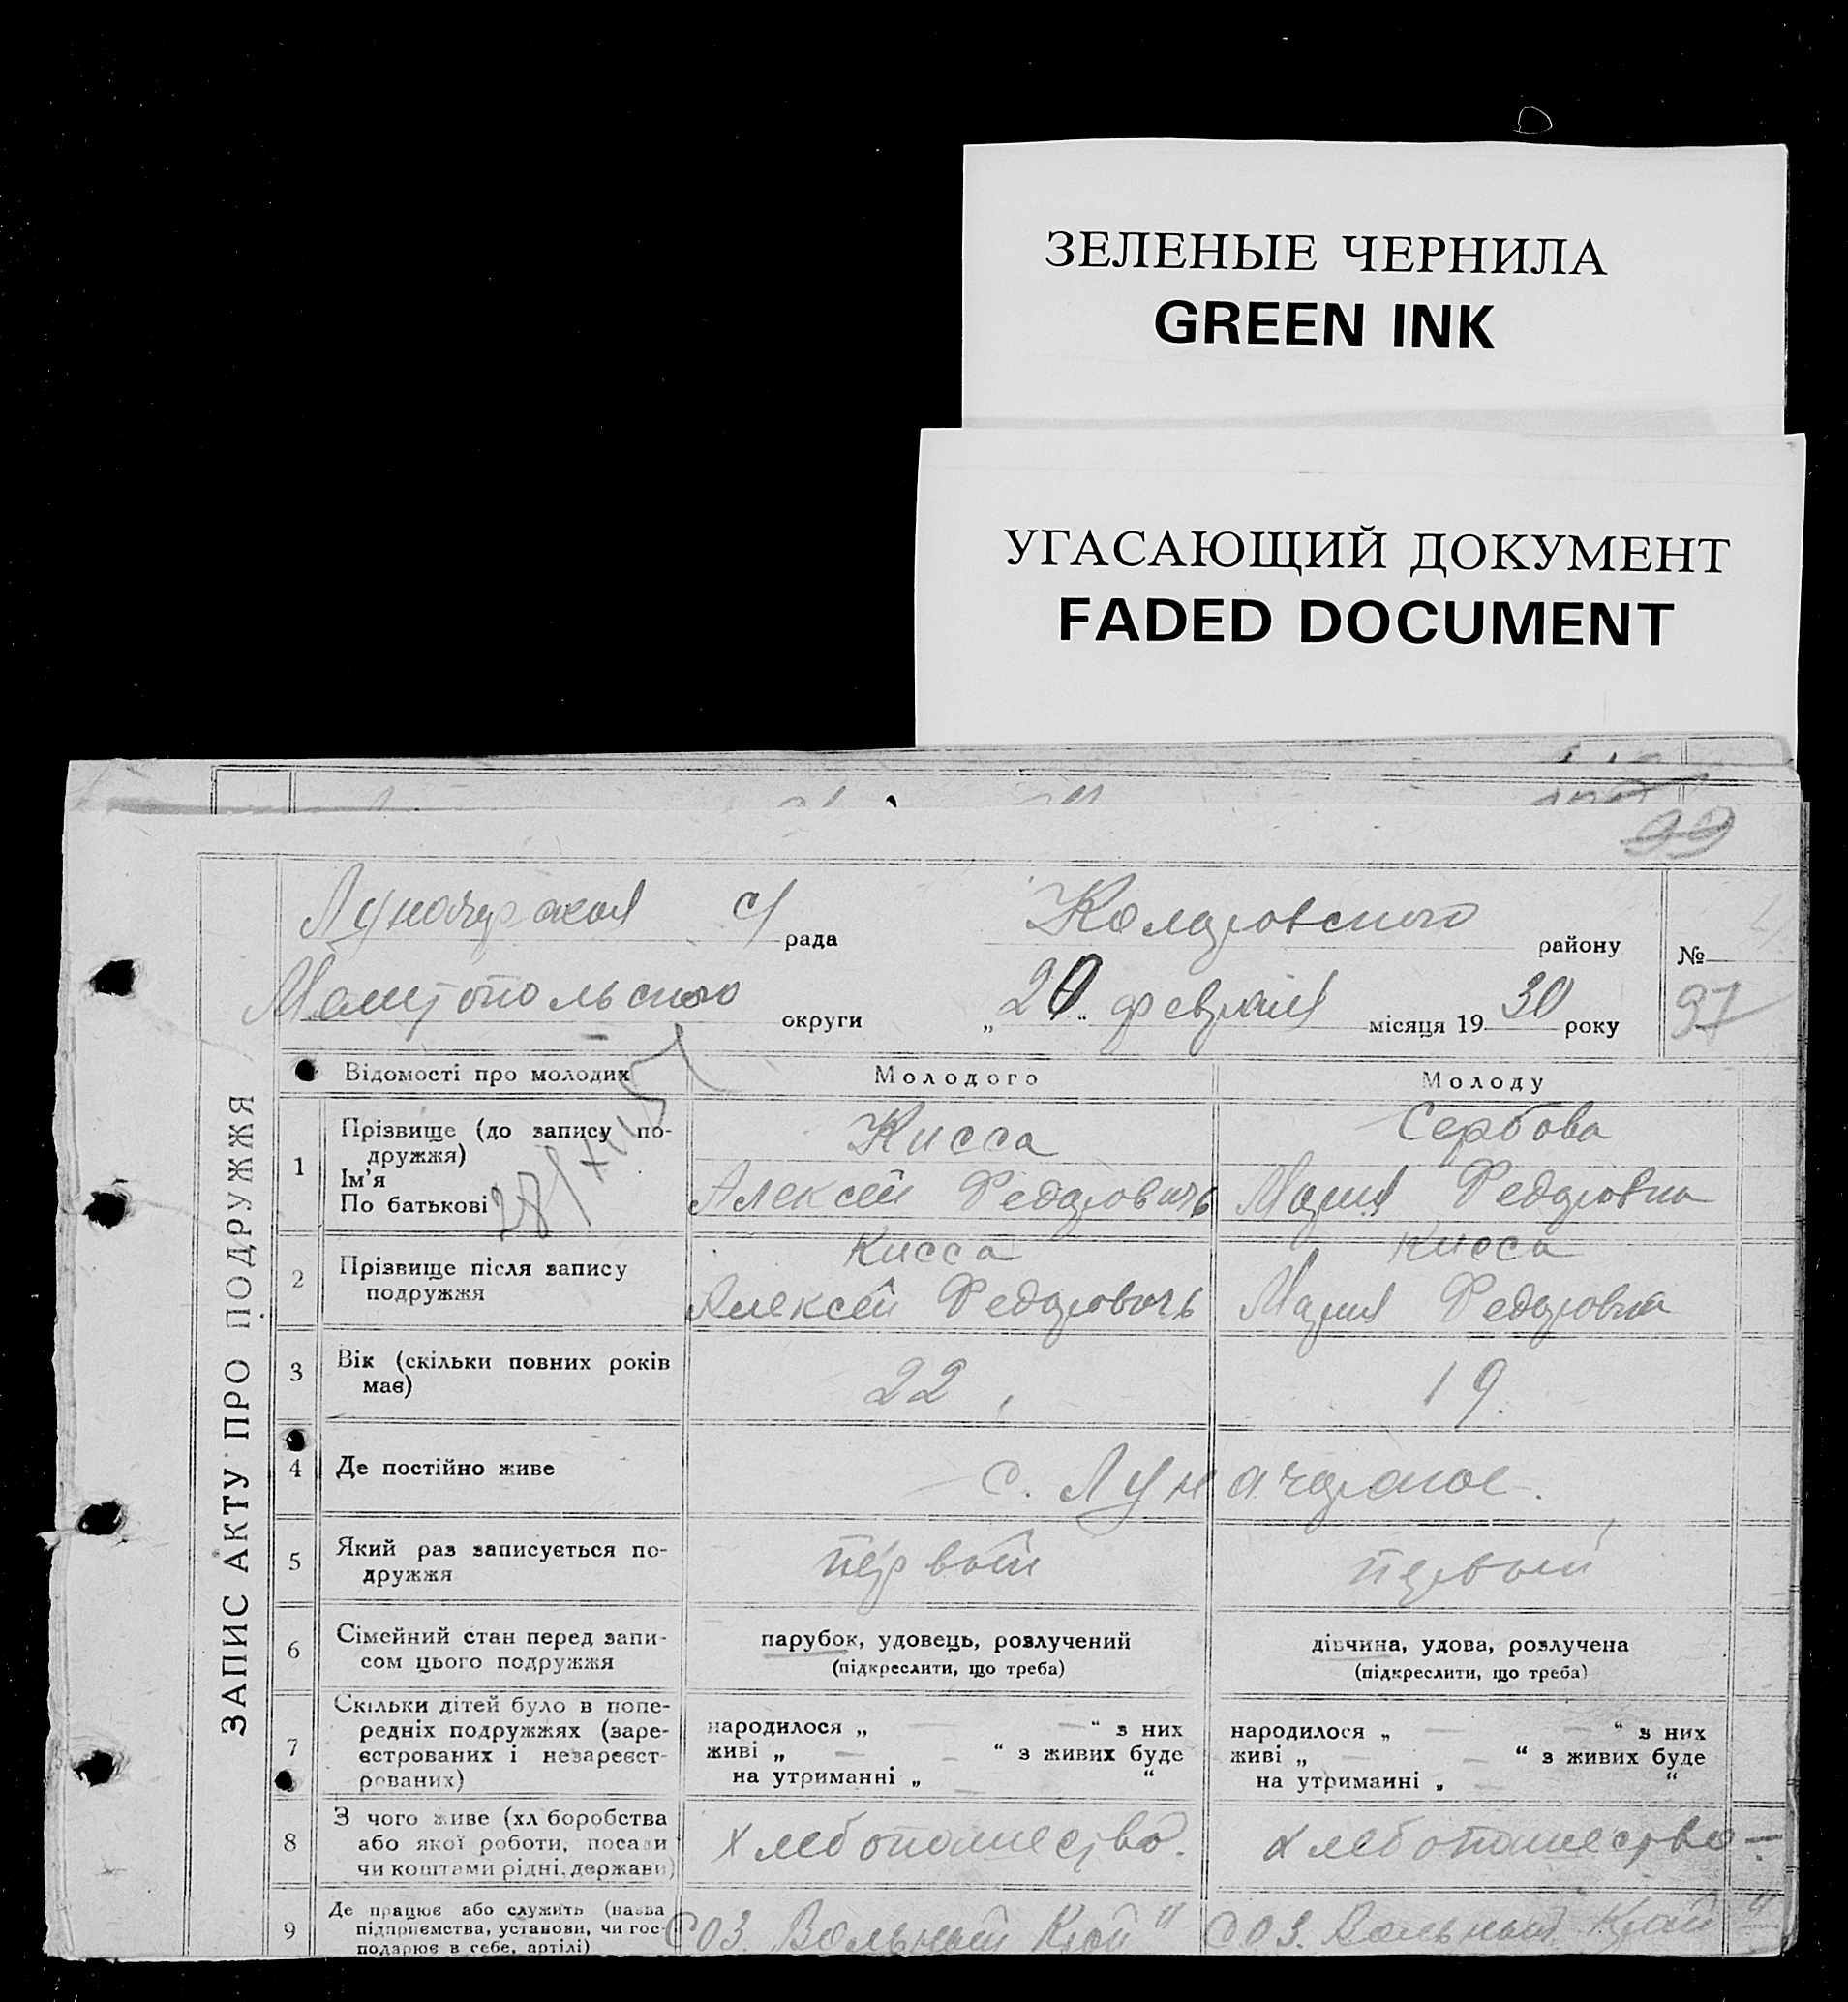 ЗЕЛЕНЫЕ ЧЕРНИЛА
GREEN INK
УГАСАЮЩИЙ ДОКУМЕНТ
FADED DOCUMENT
99
ЗАПИС АКТУ ПРО ПОДРУЖЖЯ
Луначарская с/ рада Коларовского району №
Мелитопольского округи „20“ февраля місяця 1930 року 97
Відомості про молодих Молодого Молоду
1 Прізвище (до запису по-
дружжя) Кисса Сербова
Ім’я
По батькові Алексей Федорович Мария Федоровна
2 Прізвище після запису
подружжя Кисса Кисса
Алексей Федорович Мария Федоровна
3 Вік (скільки повних років
має) 22 19.
4 Де постійно живе с. Луначарское.
5 Який раз записується по-
дружжя первый первый
6 Сімейний стан перед запи-
сом цього подружжя
парубок, удовець, розлучений дівчина, удова, розлучена
(підкреслити, що треба) (підкреслити, що треба)
7 Скільки дітей було в попе-
редніх подружжях (заре-
єстрованих і незареєст-
рованих)
народилося „ — — “ з них народилося „ — — “ з них
живі „ — — “ з живих буде живі „ — — “ з живих буде
на утриманні „ — “ на утриманні „ — “
8 З чого живе (хліборобства
або якої роботи, посади
чи коштами рідні, держави)
хлебопашество. хлебопашество
9 Де працює або служить (назва
підприємства, установи, чи гос-
подарює в себе, артілі)
СОЗ. Вольный Край" СОЗ. Вольный Край"